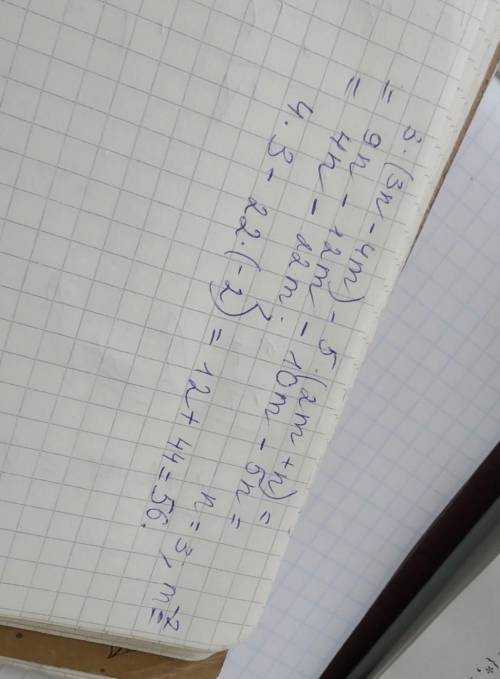 3·(3n-4m)-5·(2m+n)=
= 9n-12m-10m-5n=
= 4n-22m;
n=3, m=-2
4·3-22·(-2)=12+44=56.